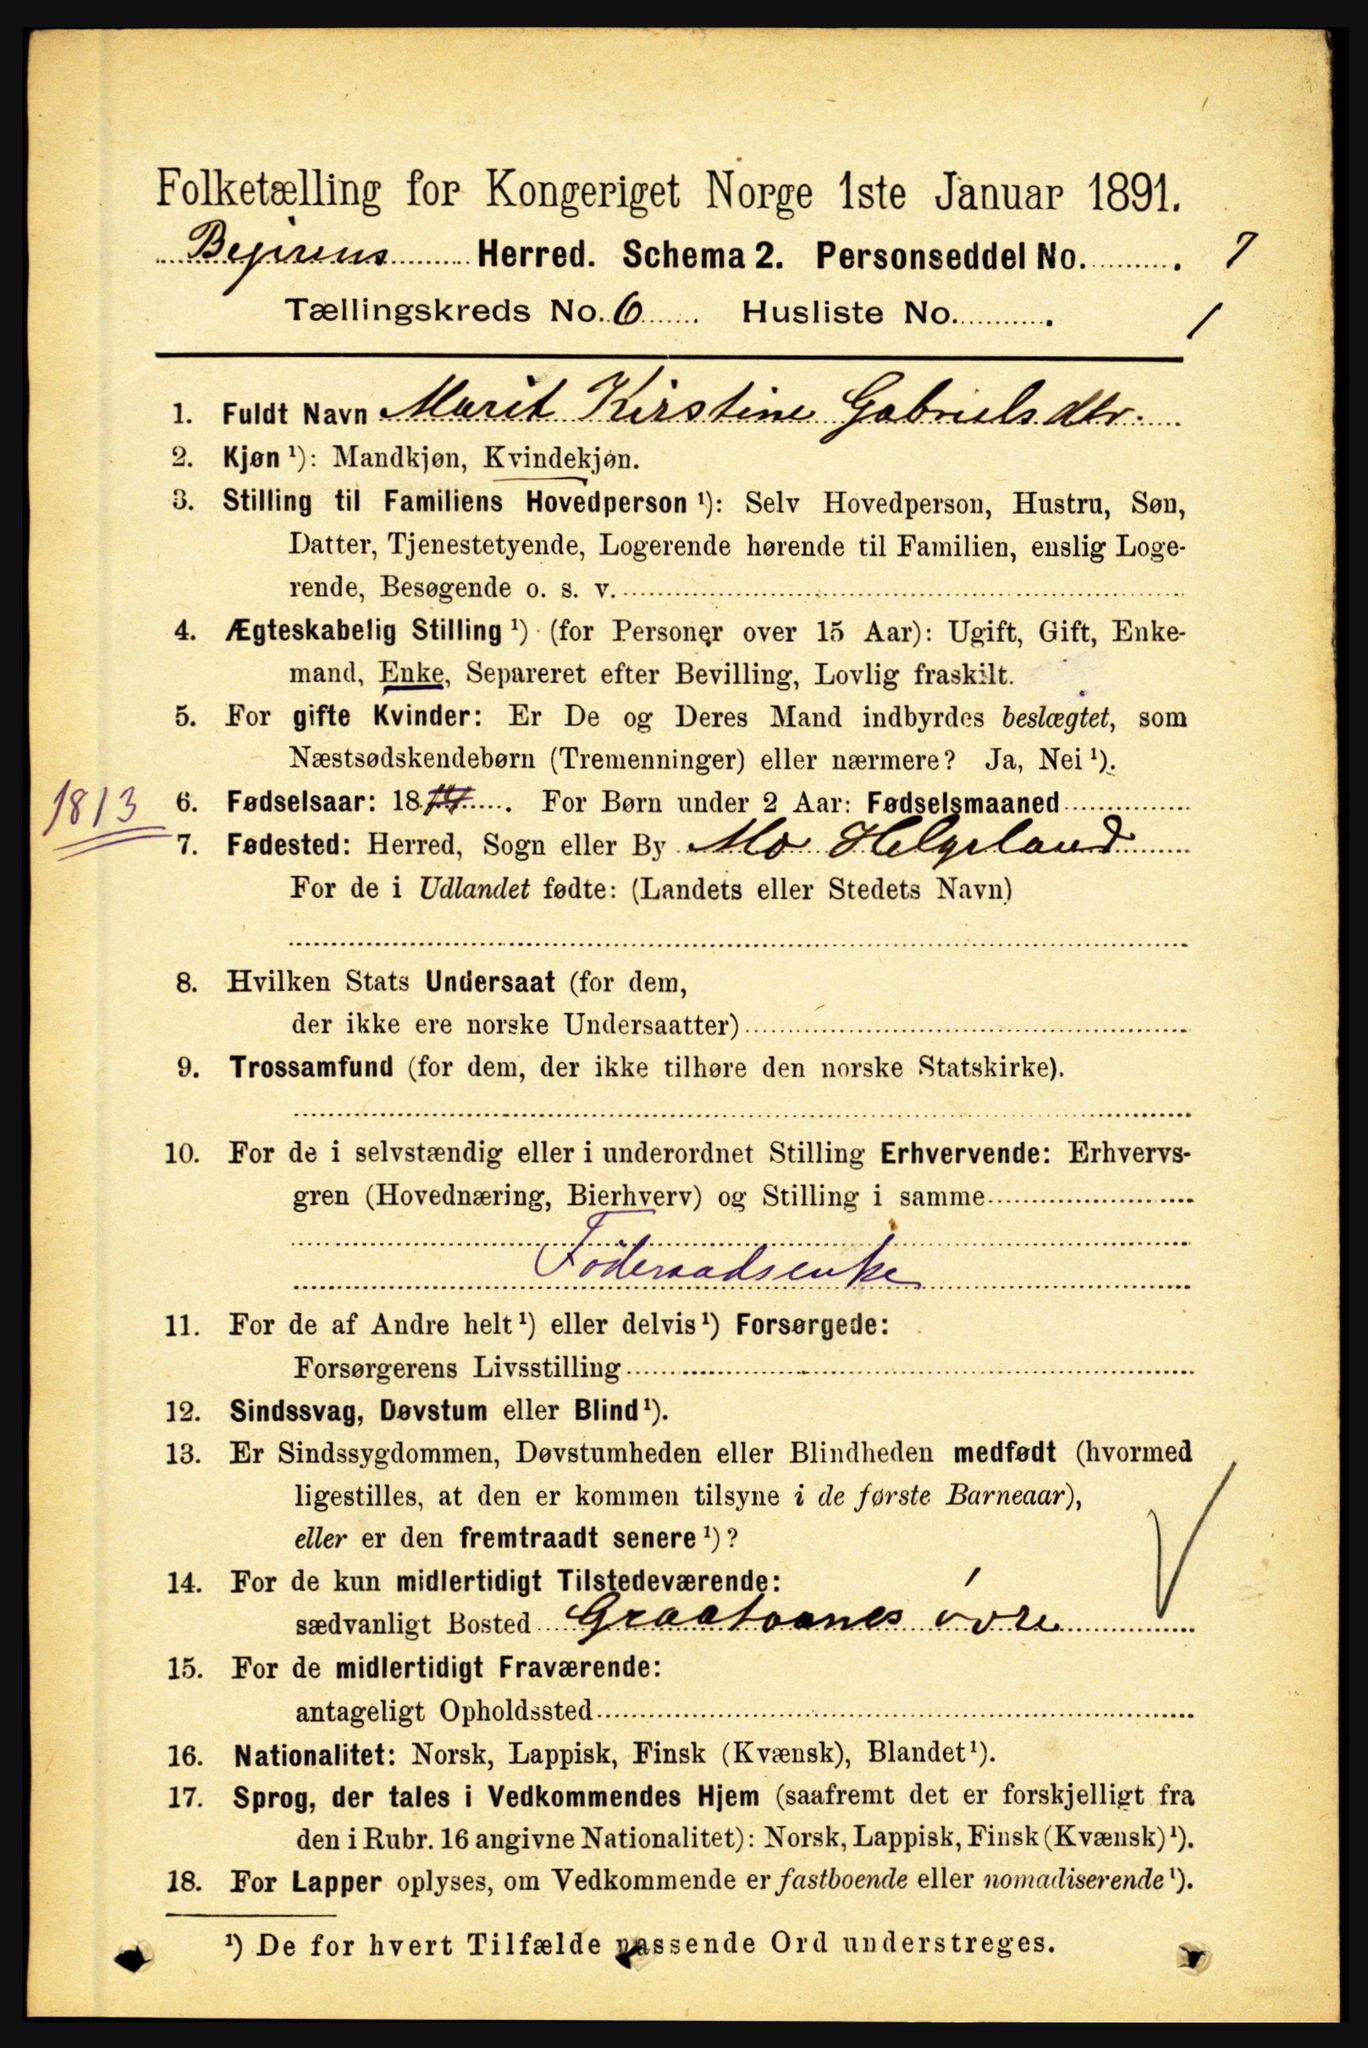 Folketælling for Kongeriget Norge 1ste Januar 1891.
Bejirens Herred. Schema 2. Personseddel No. 7
Tællingskreds No. 6 Husliste No. 1
1. Fuldt Navn Marit Kirstine Gabrielsdtr.
2. Kjøn ¹): Mandkjøn, Kvindekjøn.
3. Stilling til Familiens Hovedperson ¹): Selv Hovedperson, Hustru, Søn,
Datter, Tjenestetyende, Logerende hørende til Familien, enslig Loge-
rende, Besøgende o. s. v.
4. Ægteskabelig Stilling ¹) (for Personer over 15 Aar): Ugift, Gift, Enke-
mand, Enke, Separeret efter Bevilling, Lovlig fraskilt.
5. For gifte Kvinder: Er De og Deres Mand indbyrdes beslægtet, som
Næstsødskendebørn (Tremenninger) eller nærmere? Ja, Nei ¹).
1813 6. Fødselsaar: 18 . For Børn under 2 Aar: Fødselsmaaned
7. Fødested: Herred, Sogn eller By Mo Helgeland
For de i Udlandet fødte: (Landets eller Stedets Navn)
8. Hvilken Stats Undersaat (for dem,
der ikke ere norske Undersaatter)
9. Trossamfund (for dem, der ikke tilhøre den norske Statskirke).
10. For de i selvstændig eller i underordnet Stilling Erhvervende: Erhvervs-
gren (Hovednæring, Bierhverv) og Stilling i samme
Föderaadsenke
11. For de af Andre helt ¹) eller delvis ¹) Forsørgede:
Forsørgerens Livsstilling
12. Sindssvag, Døvstum eller Blind ¹).
13. Er Sindssygdommen, Døvstumheden eller Blindheden medfødt (hvormed
ligestilles, at den er kommen tilsyne i de første Barneaar),
eller er den fremtraadt senere ¹)?
14. For de kun midlertidigt Tilstedeværende:
sædvanligt Bosted Graataanes övre
15. For de midlertidigt Fraværende:
antageligt Opholdssted
16. Nationalitet: Norsk, Lappisk, Finsk (Kvænsk), Blandet ¹).
17. Sprog, der tales i Vedkommendes Hjem (saafremt det er forskjelligt fra
den i Rubr. 16 angivne Nationalitet): Norsk, Lappisk, Finsk (Kvænsk) ¹).
18. For Lapper oplyses, om Vedkommende er fastboende eller nomadiserende ¹).
¹) De for hvert Tilfælde passende Ord understreges.